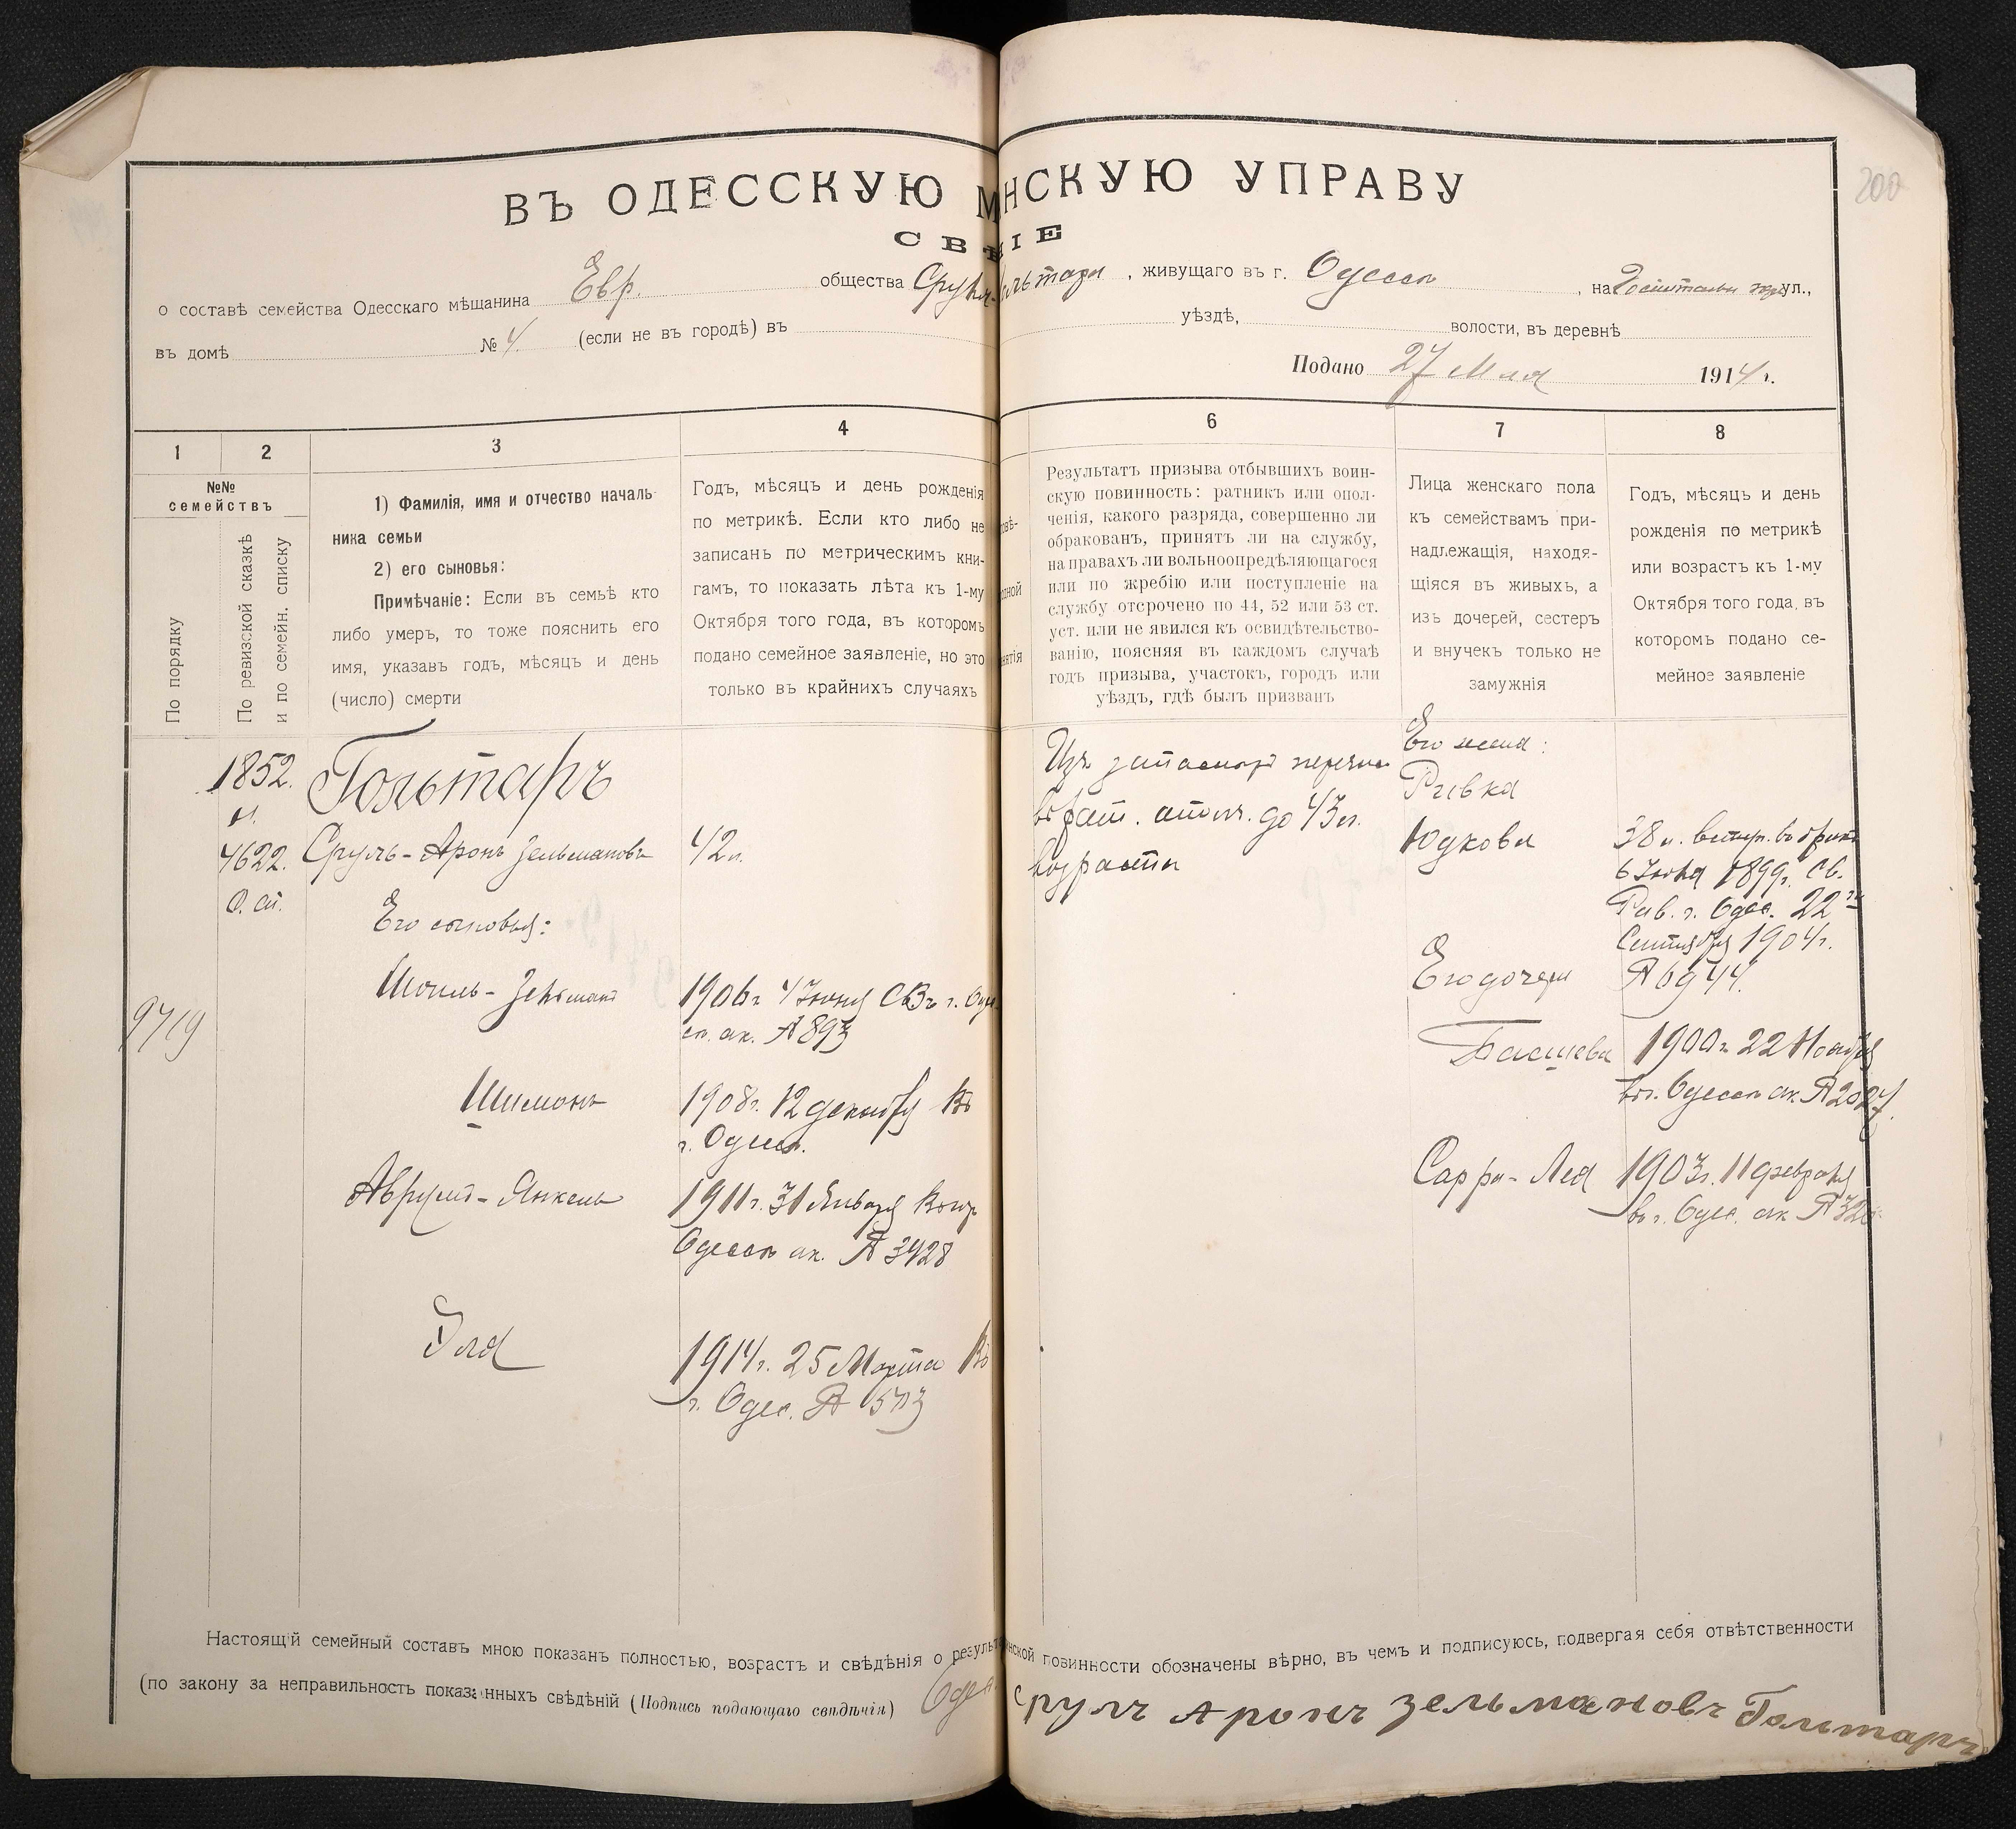 200
ВЪ ОДЕССКУЮ М НСКУЮ УПРАВУ
СВѢ ІЕ
о составѣ семейства Одесскаго мѣщанина Евр. общества Сруля Гольтаръ, живущаго въ г. Одессѣ, на ул.,
въ домѣ № 4. (если не въ городѣ) въ уѣздѣ, волости, въ деревнѣ
Подано 27 Мая 1914 г.
1
2
3
4
6
7
8
№№
семействъ
По порядку
По ревизской сказкѣ
и по семейн. списку
1) Фамилія, имя и отчество началь-
ника семьи
2) его сыновья:
Примѣчаніе: Если въ семьѣ кто
либо умеръ, то тоже пояснить его
имя, указавъ годъ, мѣсяцъ и день
(число) смерти
Годъ, мѣсяцъ и день рожденія
по метрикѣ. Если кто либо не
записанъ по метрическимъ кни-
гамъ, то показать лѣта къ 1-му
Октября того года, въ которомъ
подано семейное заявленіе, но это
только въ крайнихъ случаяхъ
Результатъ призыва отбывшихъ воин-
скую повинность: ратникъ или опол-
ченія, какого разряда, совершенно ли
обракованъ, принятъ ли на службу,
на правахъ ли вольноопредѣляющагося
или по жребію или поступленіе на
службу отсрочено по 44, 52 или 53 ст.
уст. или не явился къ освидѣтельство-
ванію, поясняя въ каждомъ случаѣ
годъ призыва, участокъ, городъ или
уѣздъ, гдѣ былъ призванъ
Лица женскаго пола
къ семействамъ при-
надлежащія, находя-
щіяся въ живыхъ, а
изъ дочерей, сестеръ
и внучекъ только не
замужнія
Годъ, мѣсяцъ и день
рожденія по метрикѣ
или возрастъ къ 1-му
Октября того года, въ
которомъ подано се-
мейное заявленіе
1852.
4622.
9719
Гольтаръ
Сруль-Аронъ Зельмановъ 42 л.
Его сыновья:
Шоиль-Зельманъ 1906 г. 4 Іюня
ак. № 893
Шимонъ 1908 г. 12 декабря въ
г. Одессѣ.
Аврумъ-Янкель 1911 г. 31 Января въ гор.
Одессѣ ак. № 3428
Эля 1914 г. 25 Марта въ
г. Одес. №
Изъ запаса
въ рат. ополч. до 43 л.
возраста
Его жена:
Ривка
Юдкова 38 л. вступ. въ бракъ
6 Іюня 1899 г. св.
Рав. г. Одес. 22го
Сентября 1904 г.
№ 6944.
Его дочери
Басшева 1900 г. 22 Ноября
въ г. Одессѣ ак. № 2027.
Сарра-Лея 1903 г. 11 февраля
въ г. Одес. ак №
Настоящій семейный составъ мною показанъ полностью, возрастъ и свѣдѣнія о результ инской повинности обозначены вѣрно, въ чемъ и подписуюсь, подвергая себя отвѣтственности
(по закону за неправильность показанныхъ свѣдѣній (Подпись подающаго свѣдѣнія) Срулъ Аронъ Зельмановъ Гольтаръ